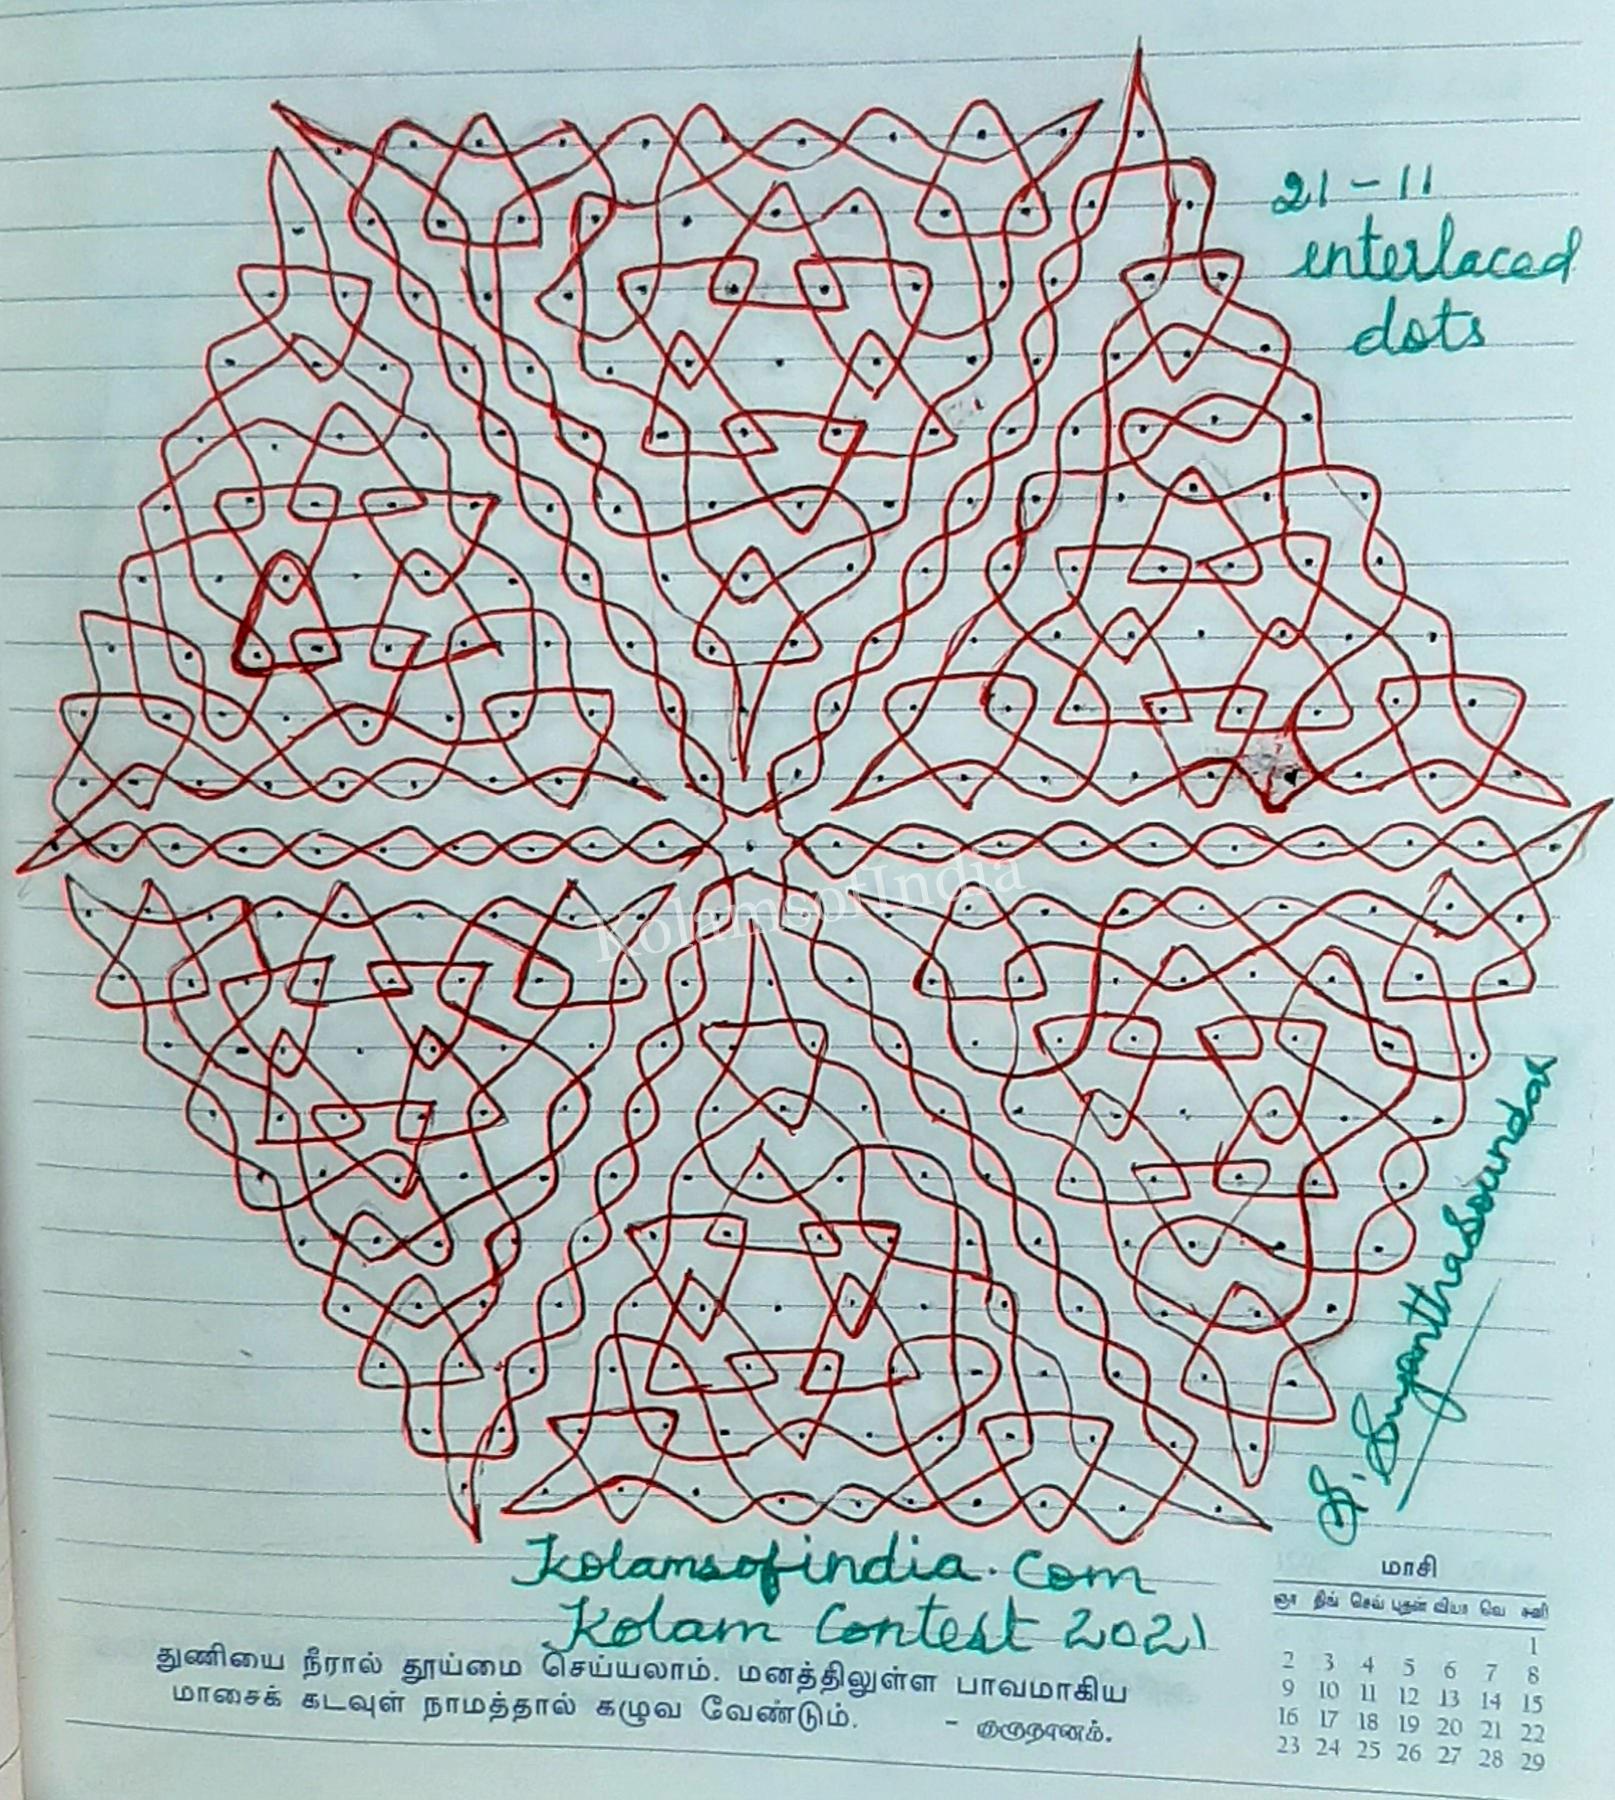 21-11
enterlacad
dots
KolamsofIndia
Kolamsofindia.com
Kolam Contest 2021
துணியை நீரால் தூய்மை செய்யலாம். மனத்திலுள்ள பாவமாகிய
மாசைக் கடவுள் நாமத்தால் கழுவ வேண்டும். - குருநானம்.
மாசி
ஞா திங் செவ் புதன் வியா வெ சனி
1
2 3 4 5 6 7 8
9 10 11 12 13 14 15
16 17 18 19 20 21 22
23 24 25 26 27 28 29